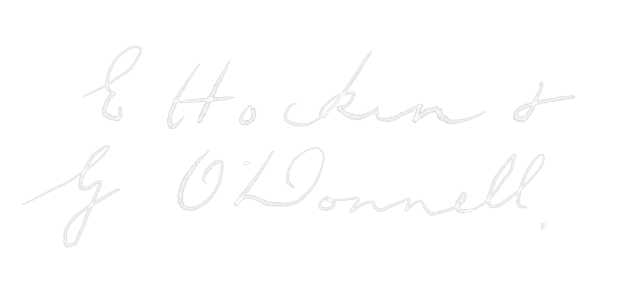 E Hockin &
G O'Donnell.